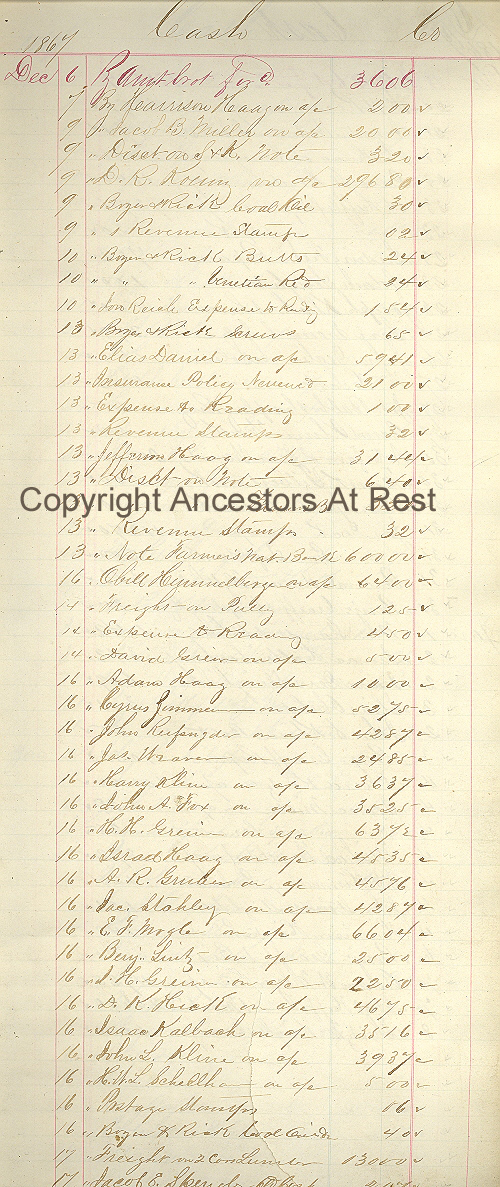 1867 Cash Cr
Dec 6 By Amt brot for'd 3606
7 " Harrison Haag on a/c 200
9 " Jacob B. Miller on a/c 2000
9 " Disct on Note 320
9 " D. R. on a/c 29680
9 " Boyer & Rick Coal Oil 30
9 " Revenue Stamps 02
10 " Boyer & Rick Butts 24
10 " " " Venetian Red 24
10 " Reich Expense to 154
13 " Boyer & Rick Screws 65
13 " Elias Daniel on a/c 5941
13 " Insurance Policy Renewed 2100
13 " Expense to Reading 100
13 " Revenue Stamps 32
13 " Jefferson Haag on a/c 3144
13 " Disct on Note 640
Copyright Ancestors At Rest
13 " Revenue Stamps 32
13 " Note Farmers Nat. Bank 60000
16 " on a/c 6400
14 " Freight on 125
14 " Expense to Reading 450
14 " David Greim on a/c 500
16 " Adam Haag on a/c 1000
16 " Cyrus on a/c 5275
16 " John on a/c 4287
16 " Jas. Weaver on a/c 2485
16 " Harry Kline on a/c 3637
16 " John A. Fox on a/c 3525
16 " H. H. Greim on a/c
16 " Israel Haag on a/c 4535
16 " A. R. Gruber on a/c 4576
16 " Jac. Stahley on a/c 4287
16 " E. F. Mogle on a/c 6604
16 " Benj. on a/c 2500
16 " H. Greim on a/c 2250
16 " D. K. Hick on a/c 4675
16 " Isaac Kalbach on a/c 3516
16 " John L. Kline on a/c 3937
16 " H. W. L. on a/c 500
16 " Postage Stamps 06
16 " Boyer & Rick Coal 40
17 " Freight on 2 Cars Lumber 13000
17 " Jacob E.